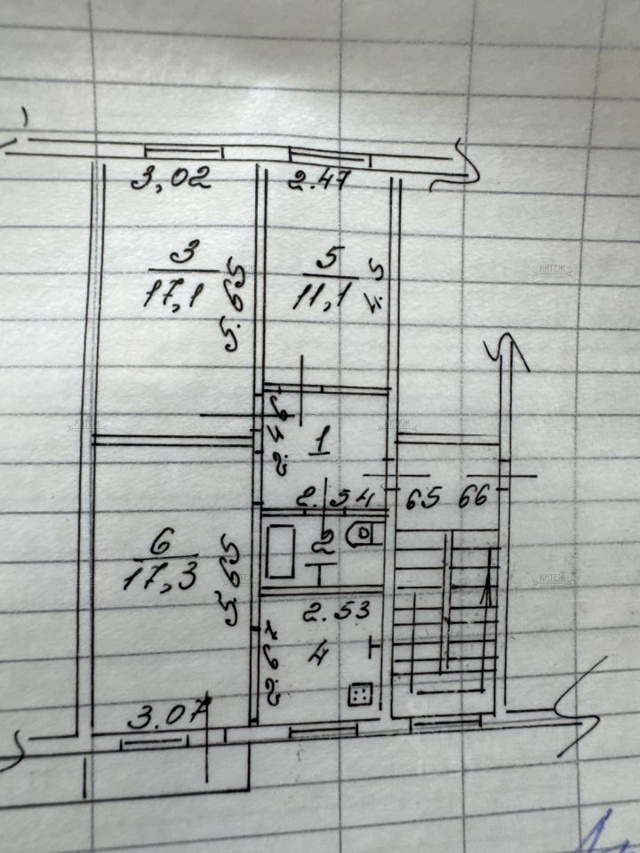 3,02
2.47
3
17,1
5.65
5
11,1
4.5
КИТЕЖ
1
2.46
2.54
65 66
6
17,3
5.65
2
2.53
4
2.67
3.07